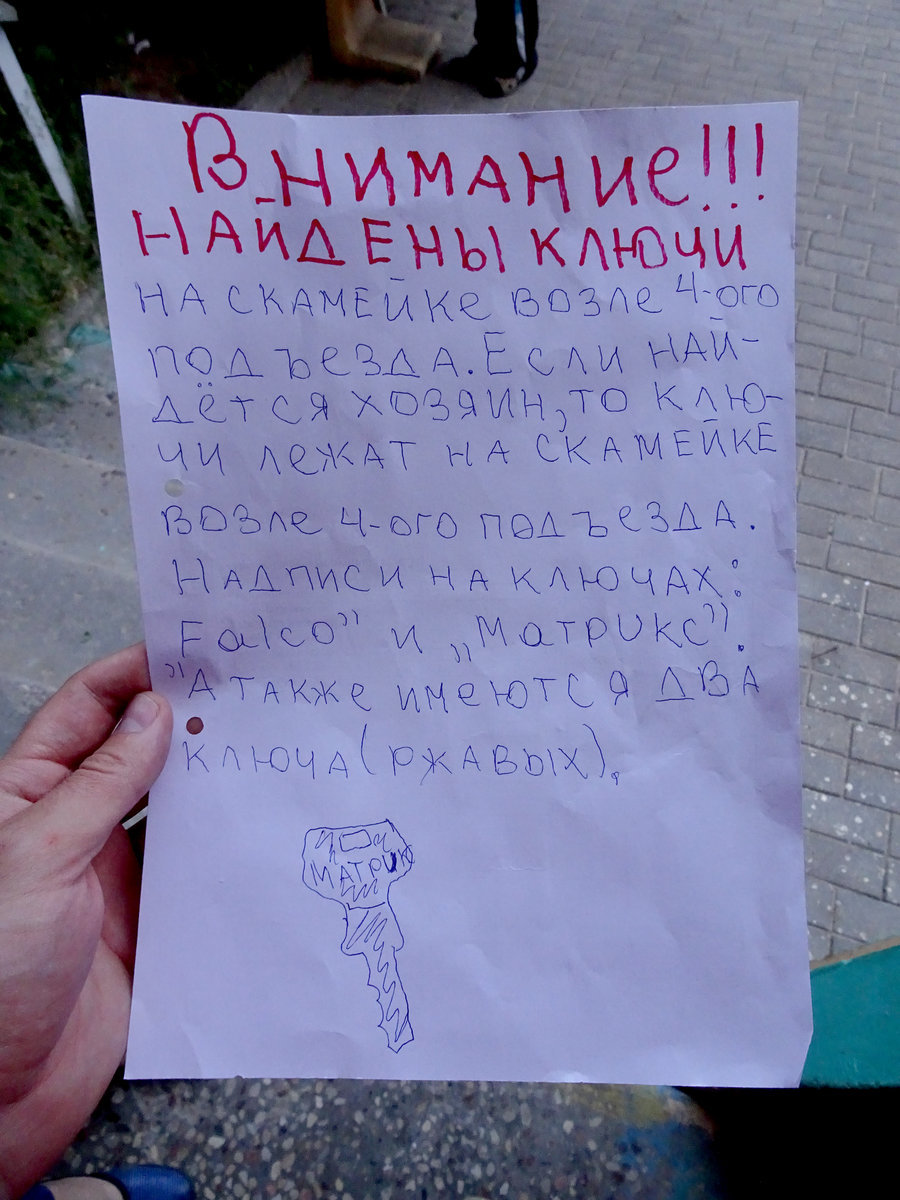 Внимание!!!
НАЙДЕНЫ КЛЮЧИ
НА СКАМЕЙКЕ ВОЗЛЕ 4-ого
ПОДЪЕЗДА. ЕСЛИ НАЙ-
ДЁТСЯ ХОЗЯИН, ТО КЛЮ-
ЧИ ЛЕЖАТ НА СКАМЕЙКЕ
ВОЗЛЕ 4-ого ПОДЪЕЗДА.
НАДПИСИ НА КЛЮЧАХ:
"Falco” и „Матрикс”.
А ТАКЖЕ ИМЕЮТСЯ ДВА
КЛЮЧА (РЖАВЫХ).
МАТРИК